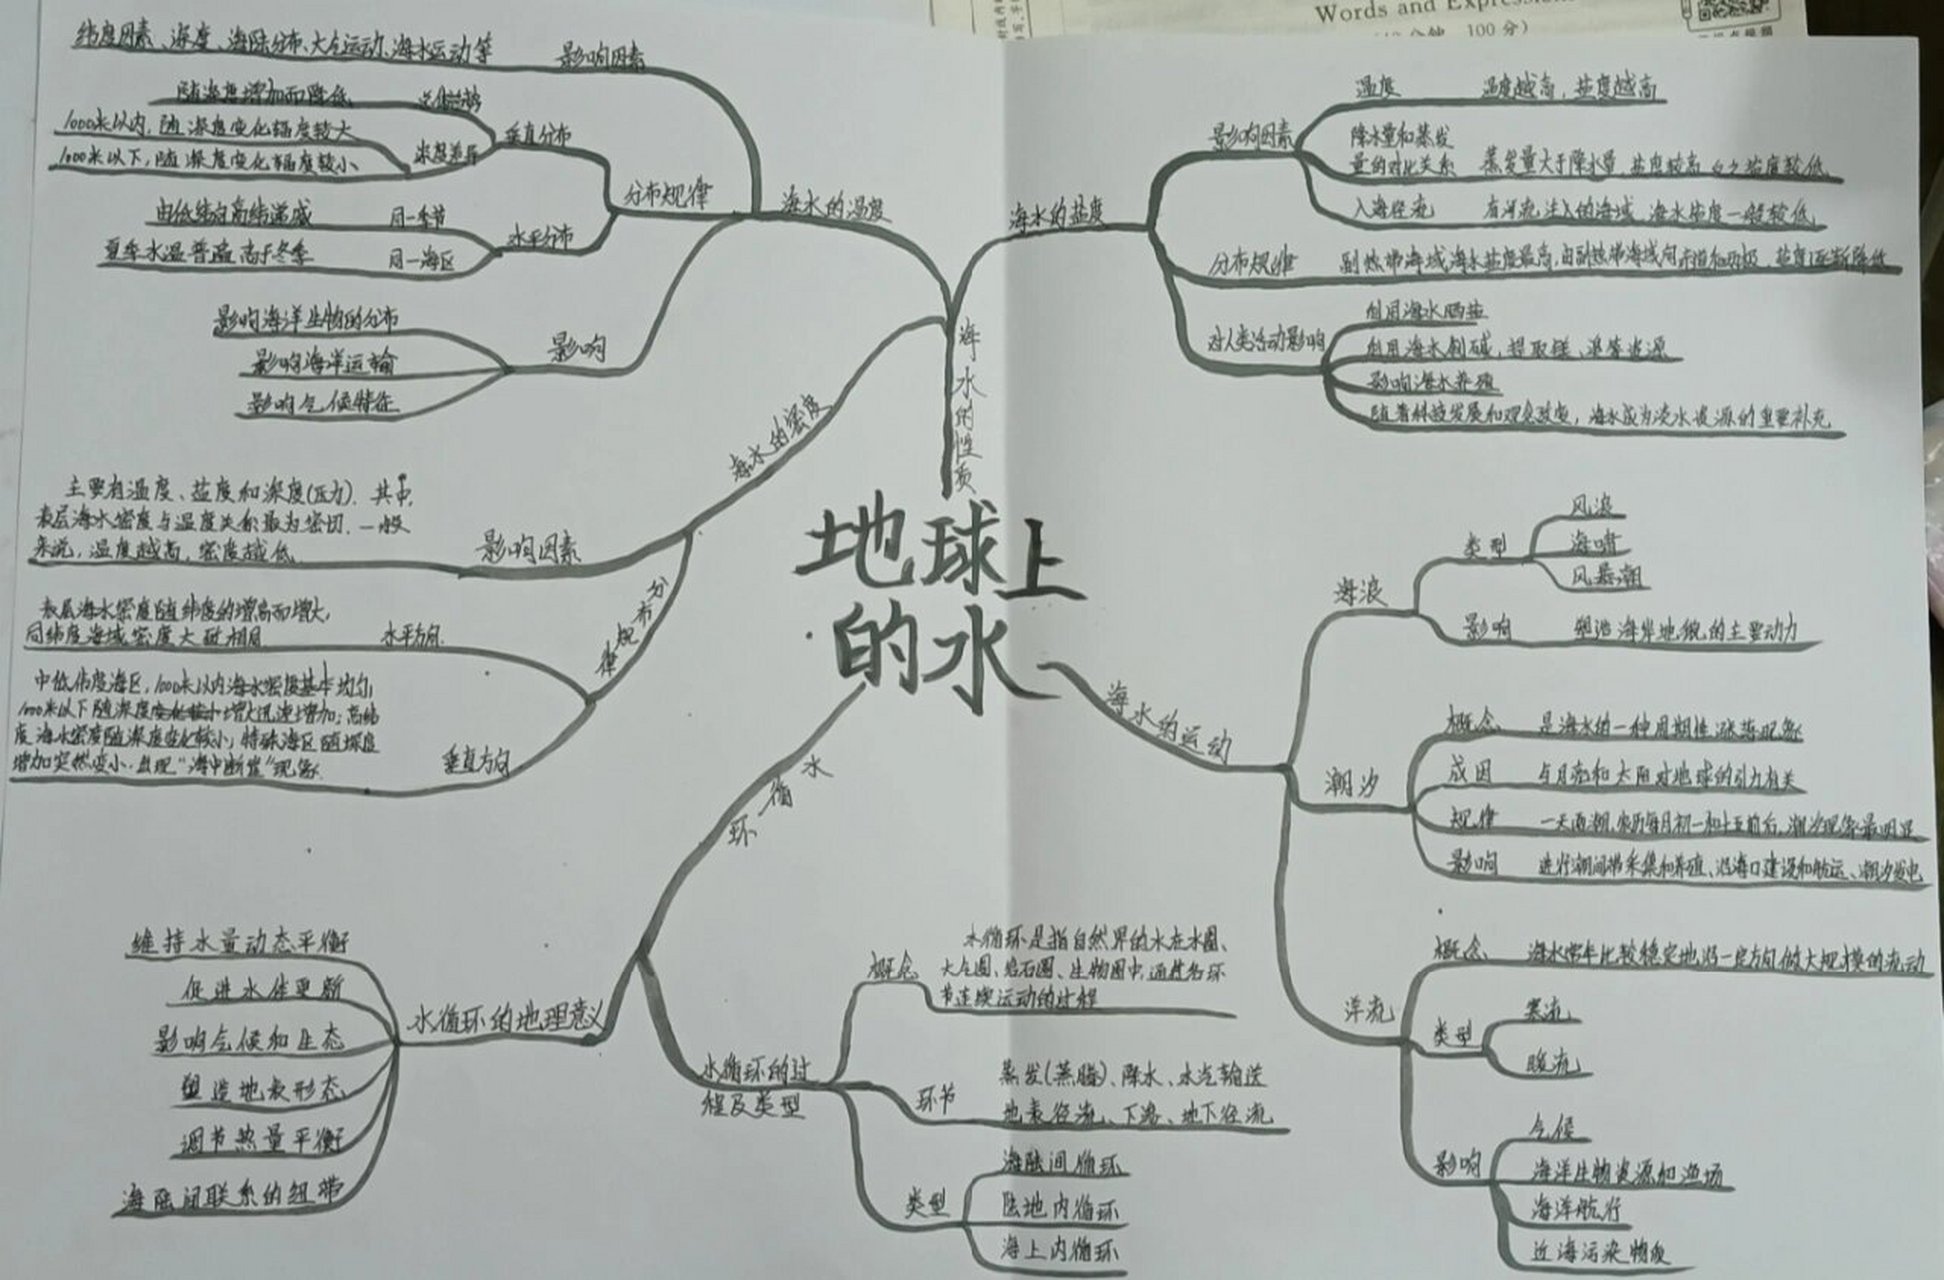 Words and Express
100分)
地球上
的水
海水的性质
海水的温度
影响因素
纬度因素、深度、海陆分布、大气运动、海水运动等
分布规律
垂直分布
随深度增加而降低
深度差异
1000米以内,随深度变化幅度较大
1000米以下,随深度变化幅度较小
水平分布
同一季节
由低纬向高纬递减
同一海区
夏季水温普遍高于冬季
影响
影响海洋生物的分布
影响海洋运输
影响气候特征
海水的密度
影响因素
主要有温度、盐度和深度(压力).其中,
表层海水密度与温度关系最为密切.一般
来说,温度越高,密度越低
分布规律
水平方向
表层海水密度随纬度的增高而增大,
同纬度海域密度大致相同
垂直方向
中低纬度海区,1000米以内海水密度基本均匀,
1000米以下随深度增大迅速增加;高纬
度海水密度随深度变化较小;特殊海区随深度
增加突然变小.出现"海中断崖"现象.
海水的盐度
影响因素
温度
温度越高,盐度越高
降水量和蒸发
量的对比关系
蒸发量大于降水量,盐度较高,反之盐度较低
入海径流
有河流注入的海域,海水盐度一般较低
分布规律
副热带海域海水盐度最高,由副热带海域向赤道和两极,盐度逐渐降低
对人类活动影响
利用海水晒盐
利用海水制碱,提取镁、溴等资源
影响海水养殖
随着科技发展和观念改变,海水成为淡水资源的重要补充
海水的运动
海浪
类型
风浪
海啸
风暴潮
影响
塑造海岸地貌的主要动力
潮汐
概念
是海水的一种周期性涨落现象
成因
与月亮和太阳对地球的引力有关
规律
一天两潮,农历每月初一和十五前后,潮汐现象最明显
影响
进行潮间带采集和养殖、沿海口建设和航运、潮汐发电
洋流
概念
海水常年比较稳定地沿一定方向做大规模的流动
类型
寒流
暖流
影响
气候
海洋生物资源和渔场
海洋航行
近海污染物质
水循环
水循环的地理意义
维持水量动态平衡
促进水体更新
影响气候和生态
塑造地表形态
调节热量平衡
海陆间联系的纽带
水循环的过
程及类型
概念
水循环是指自然界的水在水圈、
大气圈、岩石圈、生物圈中,通过各环
节连续运动的过程
环节
蒸发(蒸腾)、降水、水汽输送
地表径流、下渗、地下径流
类型
海陆间循环
陆地内循环
海上内循环